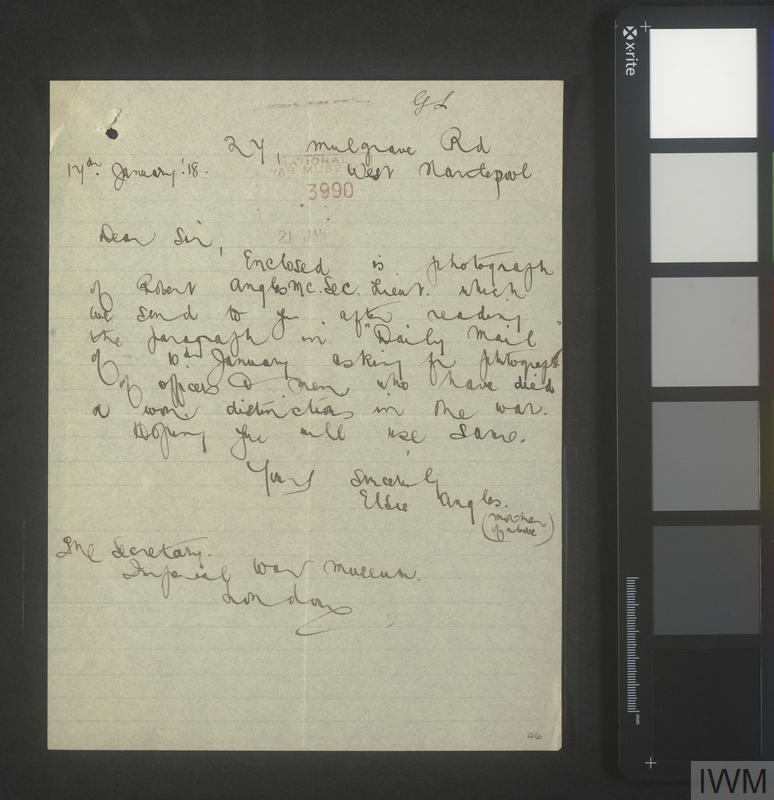 GL
27, Mulgrave Rd
West Hartlepool
17th January '18.
NATIONAL
WAR MUSEUM
3990
21 JAN
Dear Sir,
Enclosed is photograph
of Robert Angles M.C. Sec. Lieut. which
we send to you after reading
the paragraph in "Daily Mail"
of 10th January asking for photograph
of officers & men who have died
or won distinctions in the war.
Hoping you will use same.
Yours Sincerely
Elsie Angles.
(Mother
of above)
The Secretary.
Imperial War Museum.
London
46
x-rite
mm
IWM